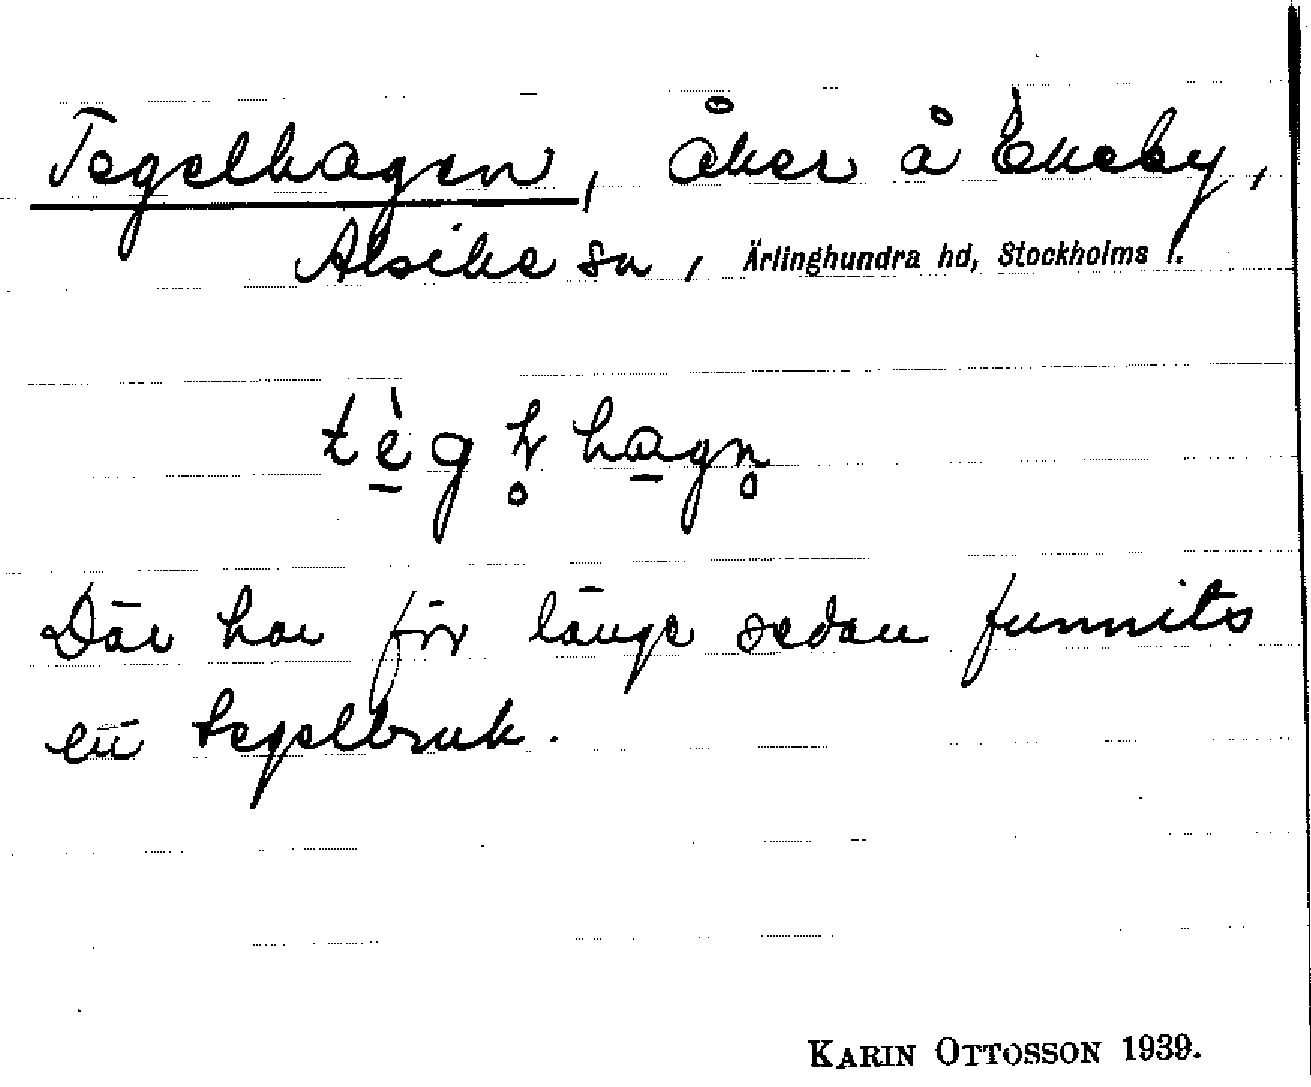 Tegelhagen, åker å Ekeby,
Alsike sn, Ärlinghundra hd, Stockholms l.
Där har för länge sedan funnits
ett tegelbruk.
KARIN OTTOSSON 1939.